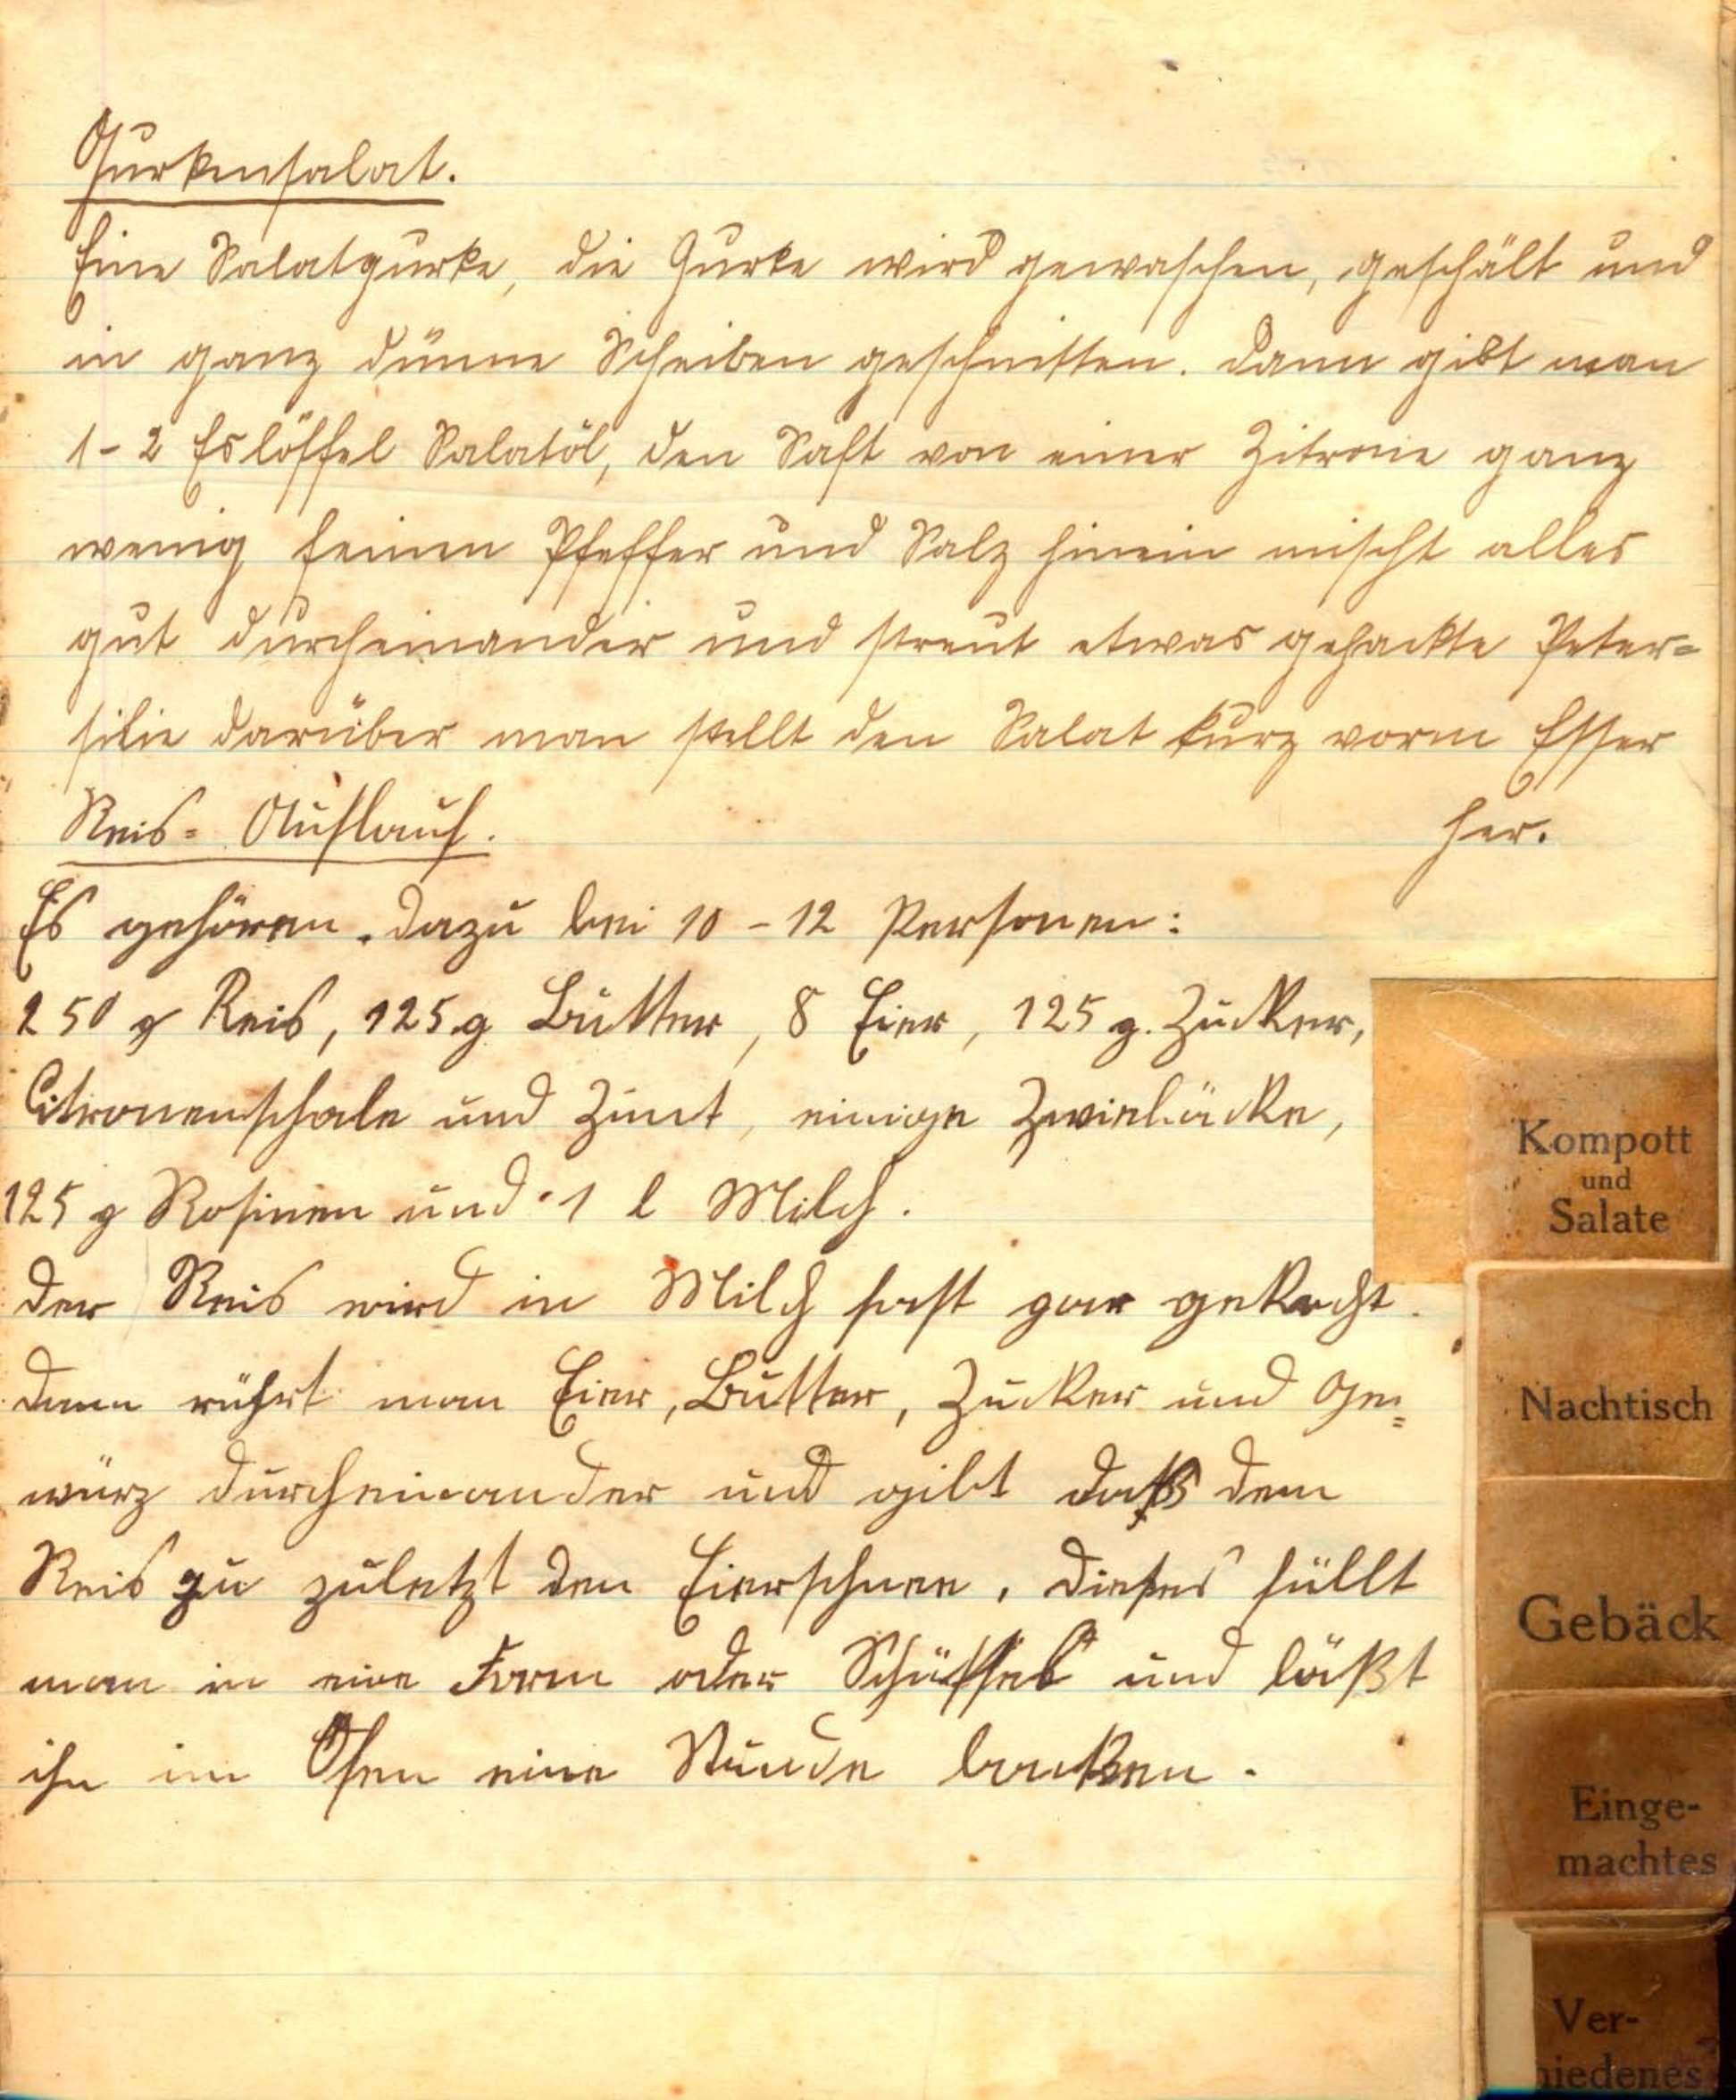 Gurkensalat.
Eine Salatgurke, die Gurke wird gewaschen, geschält und
in ganz dünne Scheiben geschnitten. Dann gibt man
1-2 Eslöffel Salatöl, den Saft von einer Zitrone ganz
wenig feinen Pfeffer und Salz hinein mischt alles
gut durcheinander und streut etwas gehackte Peter=
silie darüber man stellt den Salat kurz vorm Essen
her.
Reis= Auflauf.
Es gehören dazu bei 10-12 Personen:
250 g Reis, 125 g Butter, 8 Eier, 125 g. Zucker,
Citronenschale und Zimt, einige Zwiebäcke,
125 g Rosinen und 1 l Milch.
Der Reis wird in Milch fast gar gekocht.
Dann rührt man Eier, Butter, Zucker und Ge=
würz durcheinander und gibt daß dem
Reis zu zuletzt den Eierschnee. Dieses füllt
man in eine Form oder Schüssel und läßt
ihn im Ofen eine Stunde backen.
Kompott
und
Salate
Nachtisch
Gebäck
Einge-
machtes
Ver-
hiedenes